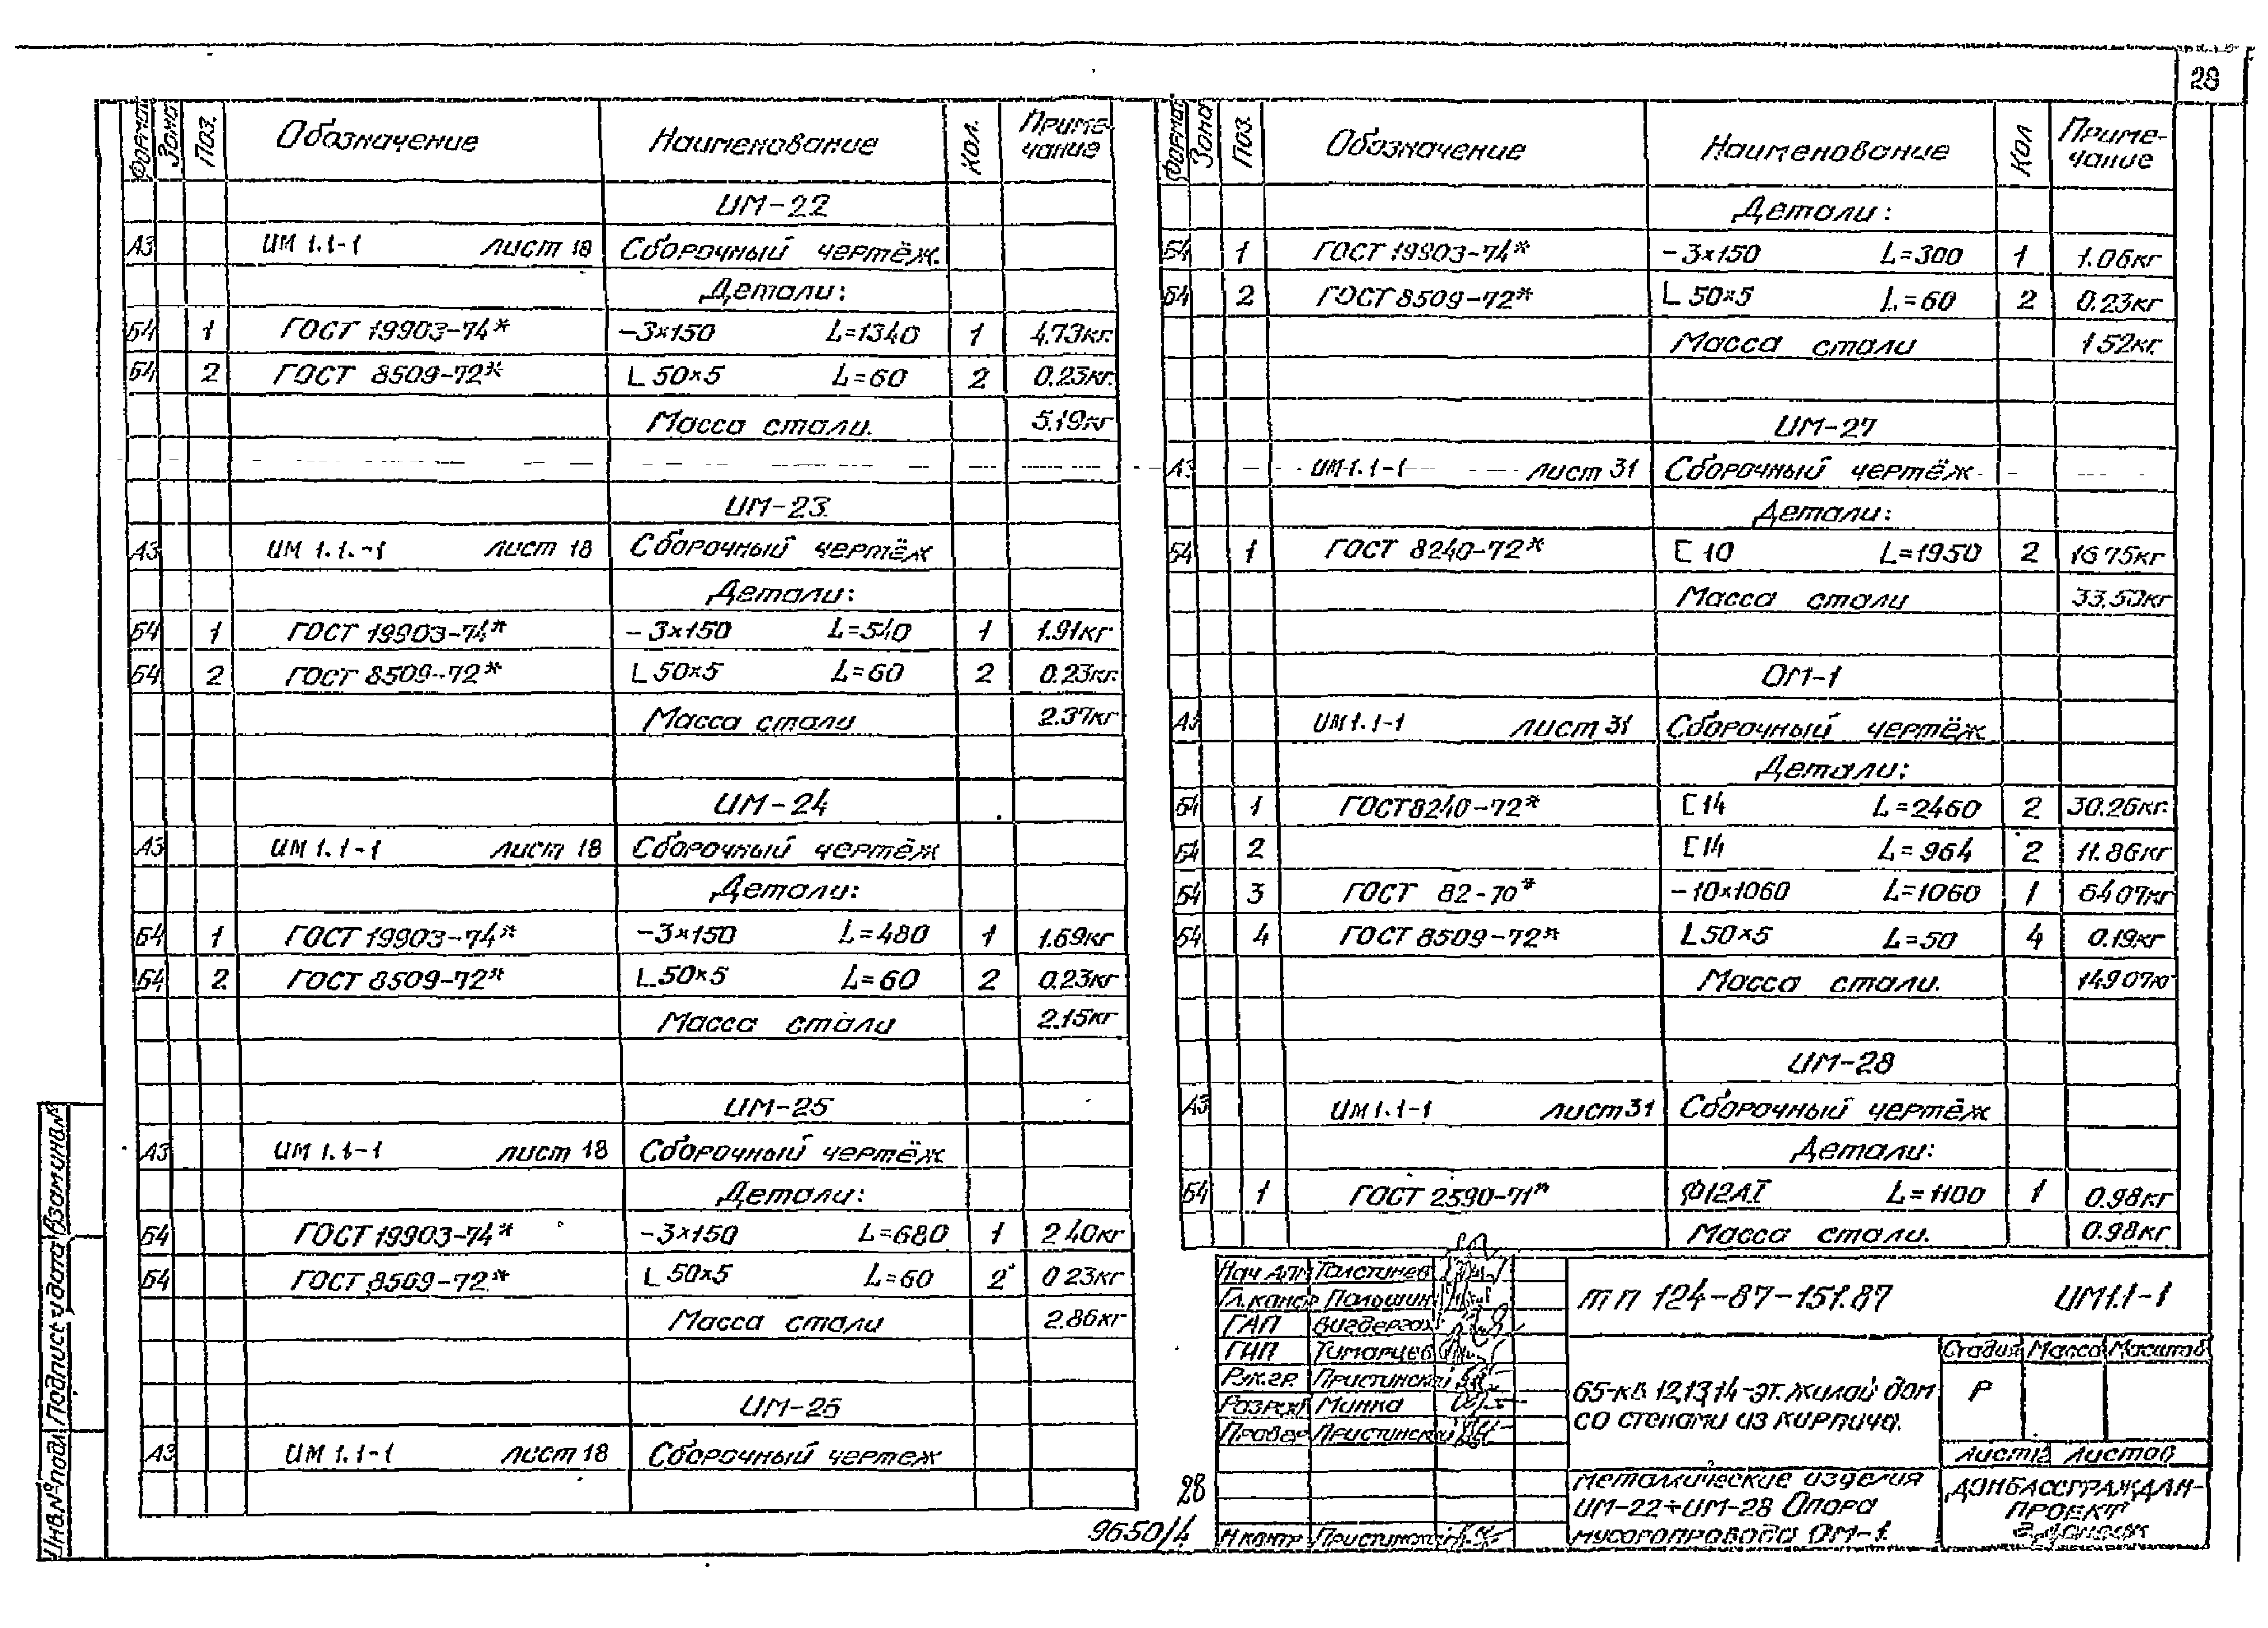 28
Формат Зона Поз. Обозначение Наименование Кол. Примечание
ИМ-22
А3 ИМ 1.1-1 лист 18 Сборочный чертёж.
Детали:
Б4 1 ГОСТ 19903-74* -3×150 L=1340 1 4.73кг.
Б4 2 ГОСТ 8509-72* L 50×5 L=60 2 0.23кг.
Масса стали. 5.19кг
ИМ-23
А3 ИМ 1.1.-1 лист 18 Сборочный чертёж
Детали:
Б4 1 ГОСТ 19903-74* -3×150 L=540 1 1.91кг
Б4 2 ГОСТ 8509-72* L 50×5 L=60 2 0.23кг.
Масса стали 2.37кг
ИМ-24
А3 ИМ 1.1-1 лист 18 Сборочный чертёж
Детали:
Б4 1 ГОСТ 19903-74* -3×150 L=480 1 1.69кг
Б4 2 ГОСТ 8509-72* L 50×5 L=60 2 0.23кг
Масса стали 2.15кг
ИМ-25
А3 ИМ 1.1-1 лист 18 Сборочный чертёж
Детали:
Б4 ГОСТ 19903-74* -3×150 L=680 1 2 40кг
Б4 ГОСТ 8509-72* L 50×5 L=60 2 0 23кг
Масса стали 2.86кг
ИМ-26
А3 ИМ 1.1-1 лист 18 Сборочный чертеж
Формат Зона Поз. Обозначение Наименование Кол Примечание
Детали:
Б4 1 ГОСТ 19903-74* -3×150 L=300 1 1.06кг
Б4 2 ГОСТ 8509-72* L 50×5 L=60 2 0.23кг
Масса стали 1 52кг
ИМ-27
А3 ИМ 1.1-1 лист 31 Сборочный чертёж
Детали:
Б4 1 ГОСТ 8240-72* [ 10 L=1950 2 16 75кг
Масса стали 33.50кг
ОМ-1
А3 ИМ 1.1-1 лист 31 Сборочный чертёж
Детали:
Б4 1 ГОСТ 8240-72* [ 14 L=2460 2 30.26кг.
Б4 2 [ 14 L=964 2 11.86кг
Б4 3 ГОСТ 82-70* -10×1060 L=1060 1 64 07кг
Б4 4 ГОСТ 8509-72* L 50×5 L=50 4 0.19кг
Масса стали. 149 07кг
ИМ-28
А3 ИМ 1.1-1 лист 31 Сборочный чертёж
Детали:
Б4 1 ГОСТ 2590-71* Ф12АI L=1100 1 0.98кг
Масса стали. 0.98кг
Нач АПМ Толстинев
Гл.констр Полошин
ГАП Вигдергоз
ГИП Тимарцев
Рук.гр. Пристинский
Разраб Минна
Провер Пристинский
Н контр Пристинский
т п 124-87-151.87 ИМ1.1-1
65-кв. 12,13,14-эт. жилой дом
со стенами из кирпича.
Стадия Масса Масштаб
Р
Лист 12 Листов
Металлические изделия
ИМ-22÷ИМ-28 Опора
мусоропровода ОМ-1.
ДОНБАССГРАЖДАН-
ПРОЕКТ
г. Донецк
28
9650/4
Инв.№ подл Подпись и дата Взам инв.№